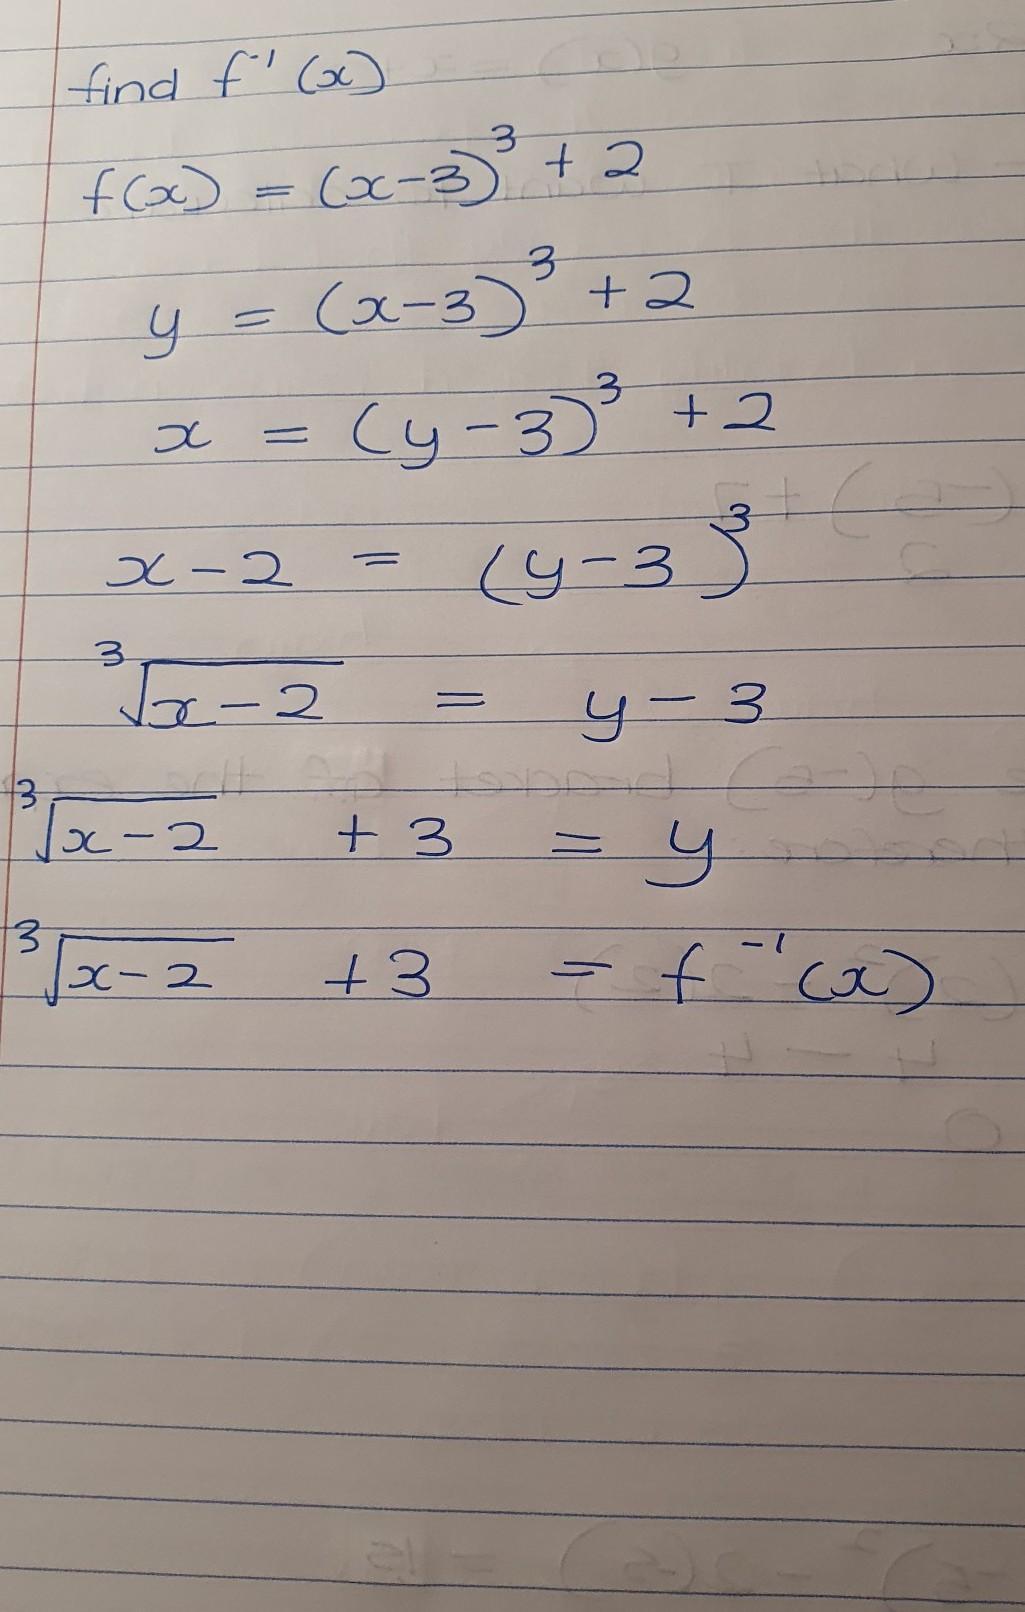 find f⁻¹(x)
f(x) = (x-3)³ + 2
y = (x-3)³ + 2
x = (y-3)³ + 2
x-2 = (y-3)³
³√x-2 = y-3
³√x-2 + 3 = y
³√x-2 + 3 = f⁻¹(x)